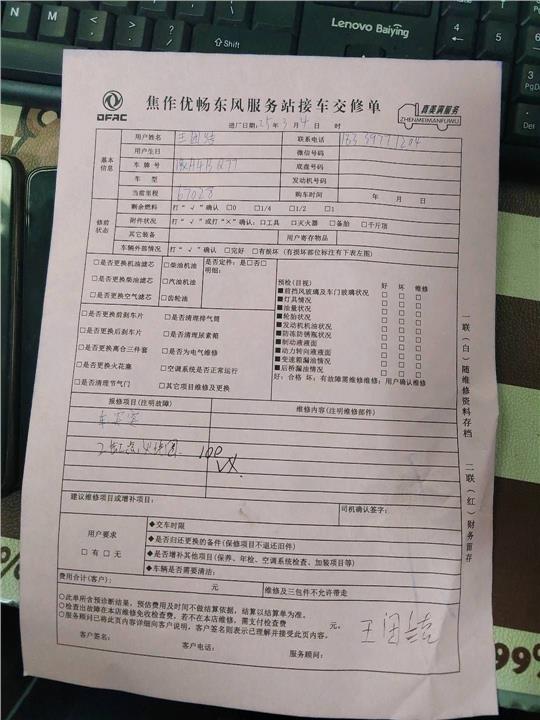 Shift
Lenovo Baiying
DFAC
焦作优畅东风服务站接车交修单
真美满服务
ZHENMEIMANFUWU
进厂日期:25年3月4日 时
基本信息
用户姓名
联系电话
用户生日 微信号码
车牌号 底盘号码
车型 发动机号码
当前里程 67028 购车时间 年 月 日
修前状态
剩余燃料 打“√”确认 □0 □1/4 □1/2 □1
附件状况 打“√”或打“×”确认:□工具 □灭火器 □备胎 □千斤顶
其它装备 用户寄存物品
车辆外部情况 打“√”确认 □完好 □有损坏 (有损坏部位标注有下表左图)
□是否更换机油滤芯 □柴油机油 是否定件: 是□否□
□是否更换柴油滤芯 □汽油机油 明细:
□是否更换空气滤芯 □齿轮油
□是否更换前刹车片 □是否清理排气筒
□是否更换后刹车片 □是否清理尿素箱
□是否更换离合三件套 □是否为电气维修
□是否更换火花塞 □空调系统是否正常运行
□是否清理节气门 □其它项目维修及更换
预检(目视) 好 坏 维修
■前挡风玻璃及车门玻璃状况 □ □ □
■灯具情况 □ □ □
■油量状况 □ □ □
■轮胎状况 □ □ □
■发动机机油状况 □ □ □
■防冻防锈瓶状况 □ □ □
■制动液液面 □ □ □
■动力转向液液面 □ □ □
■变速箱漏油情况 □ □ □
■后桥漏油情况 □ □ □
好:合格 坏:有故障需维修维修:用户确认维修
报修项目(注明故障) 维修内容(注明维修部件)
100
建议维修项目或增补项目: 司机确认签字:
用户要求
□有 □无
◆交车时限
◆是否归还更换的备件(保修项目不退还旧件)
◆是否增补其他项目(保养、年检、空调系统检查、加装项目等)
◆车辆是否需要清洁:
费用合计(客户): 元 维修及三包件不允许带走
○此单所含预诊断结果,预估费用及时间不做结算依据,结算以结算单为准。
○检查出故障在本店维修免收检查费,若不在本店维修,需支付检查费 元。
○服务顾问已将此页内容详细向客户说明,客户签名则表示已理解并接受此页内容。
客户签名: 客户电话: 服务顾问:
一联(白)随维修资料存档
二联(红)财务留存
99%